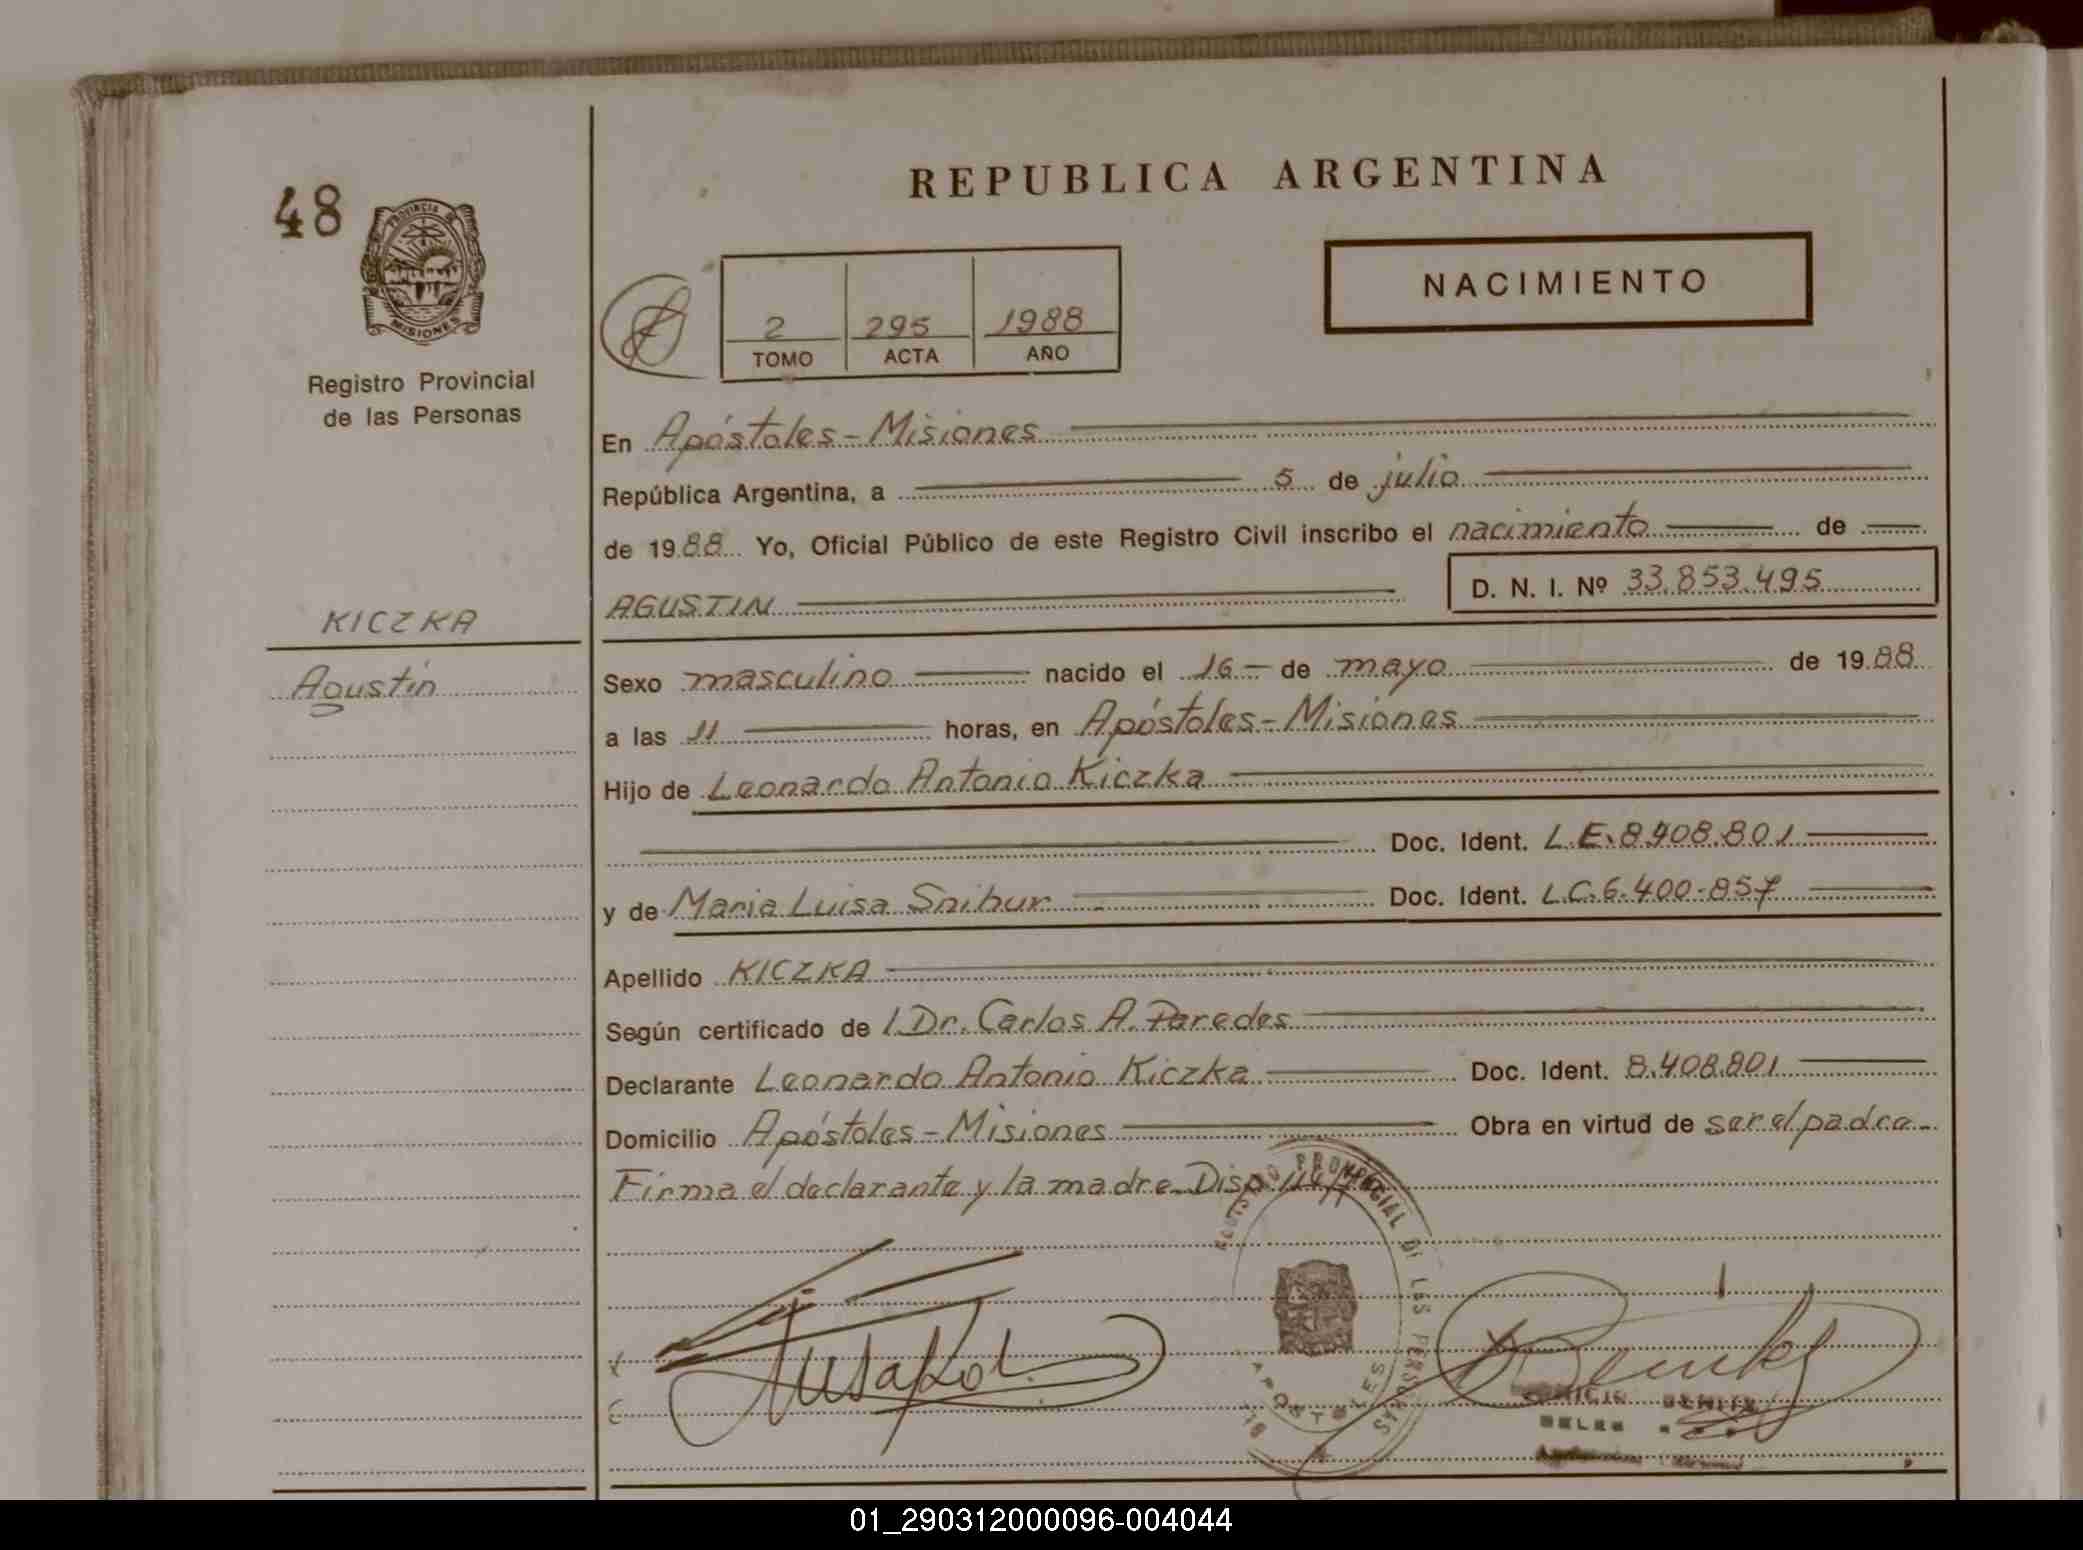 REPUBLICA ARGENTINA
48
PROVINCIA DE
MISIONES
Registro Provincial
de las Personas
NACIMIENTO
2 295 1988
TOMO ACTA AÑO
En Apóstoles - Misiones
República Argentina, a 5 de julio
de 1988 Yo, Oficial Público de este Registro Civil inscribo el nacimiento de
AGUSTIN D. N. I. Nº 33.853.495
KICZKA
Agustín
Sexo masculino nacido el 16 - de mayo de 1988
a las 11 horas, en Apóstoles - Misiones
Hijo de Leonardo Antonio Kiczka
Doc. Ident. L.E. 8.408.801
y de Maria Luisa Snihur Doc. Ident. L.C. 6.400.857
Apellido KICZKA
Según certificado de / Dr. Carlos A. Paredes
Declarante Leonardo Antonio Kiczka Doc. Ident. 8.408.801
Domicilio Apóstoles - Misiones Obra en virtud de ser el padre -
Firma el declarante y la madre. Disp.
REGISTRO PROVINCIAL DE LAS PERSONAS
APOSTOLES
01_290312000096-004044